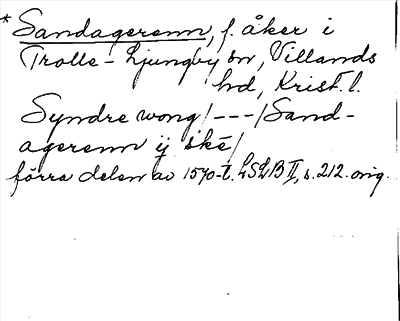 * Sandagerenn, f. åker i
Trolle-Ljungby sn, Villands
hd, Krist. l.
Syndre wong/---/Sand-
agerenn ij ske/
förra delen av 1570-t. LSLB II, s. 212. orig.